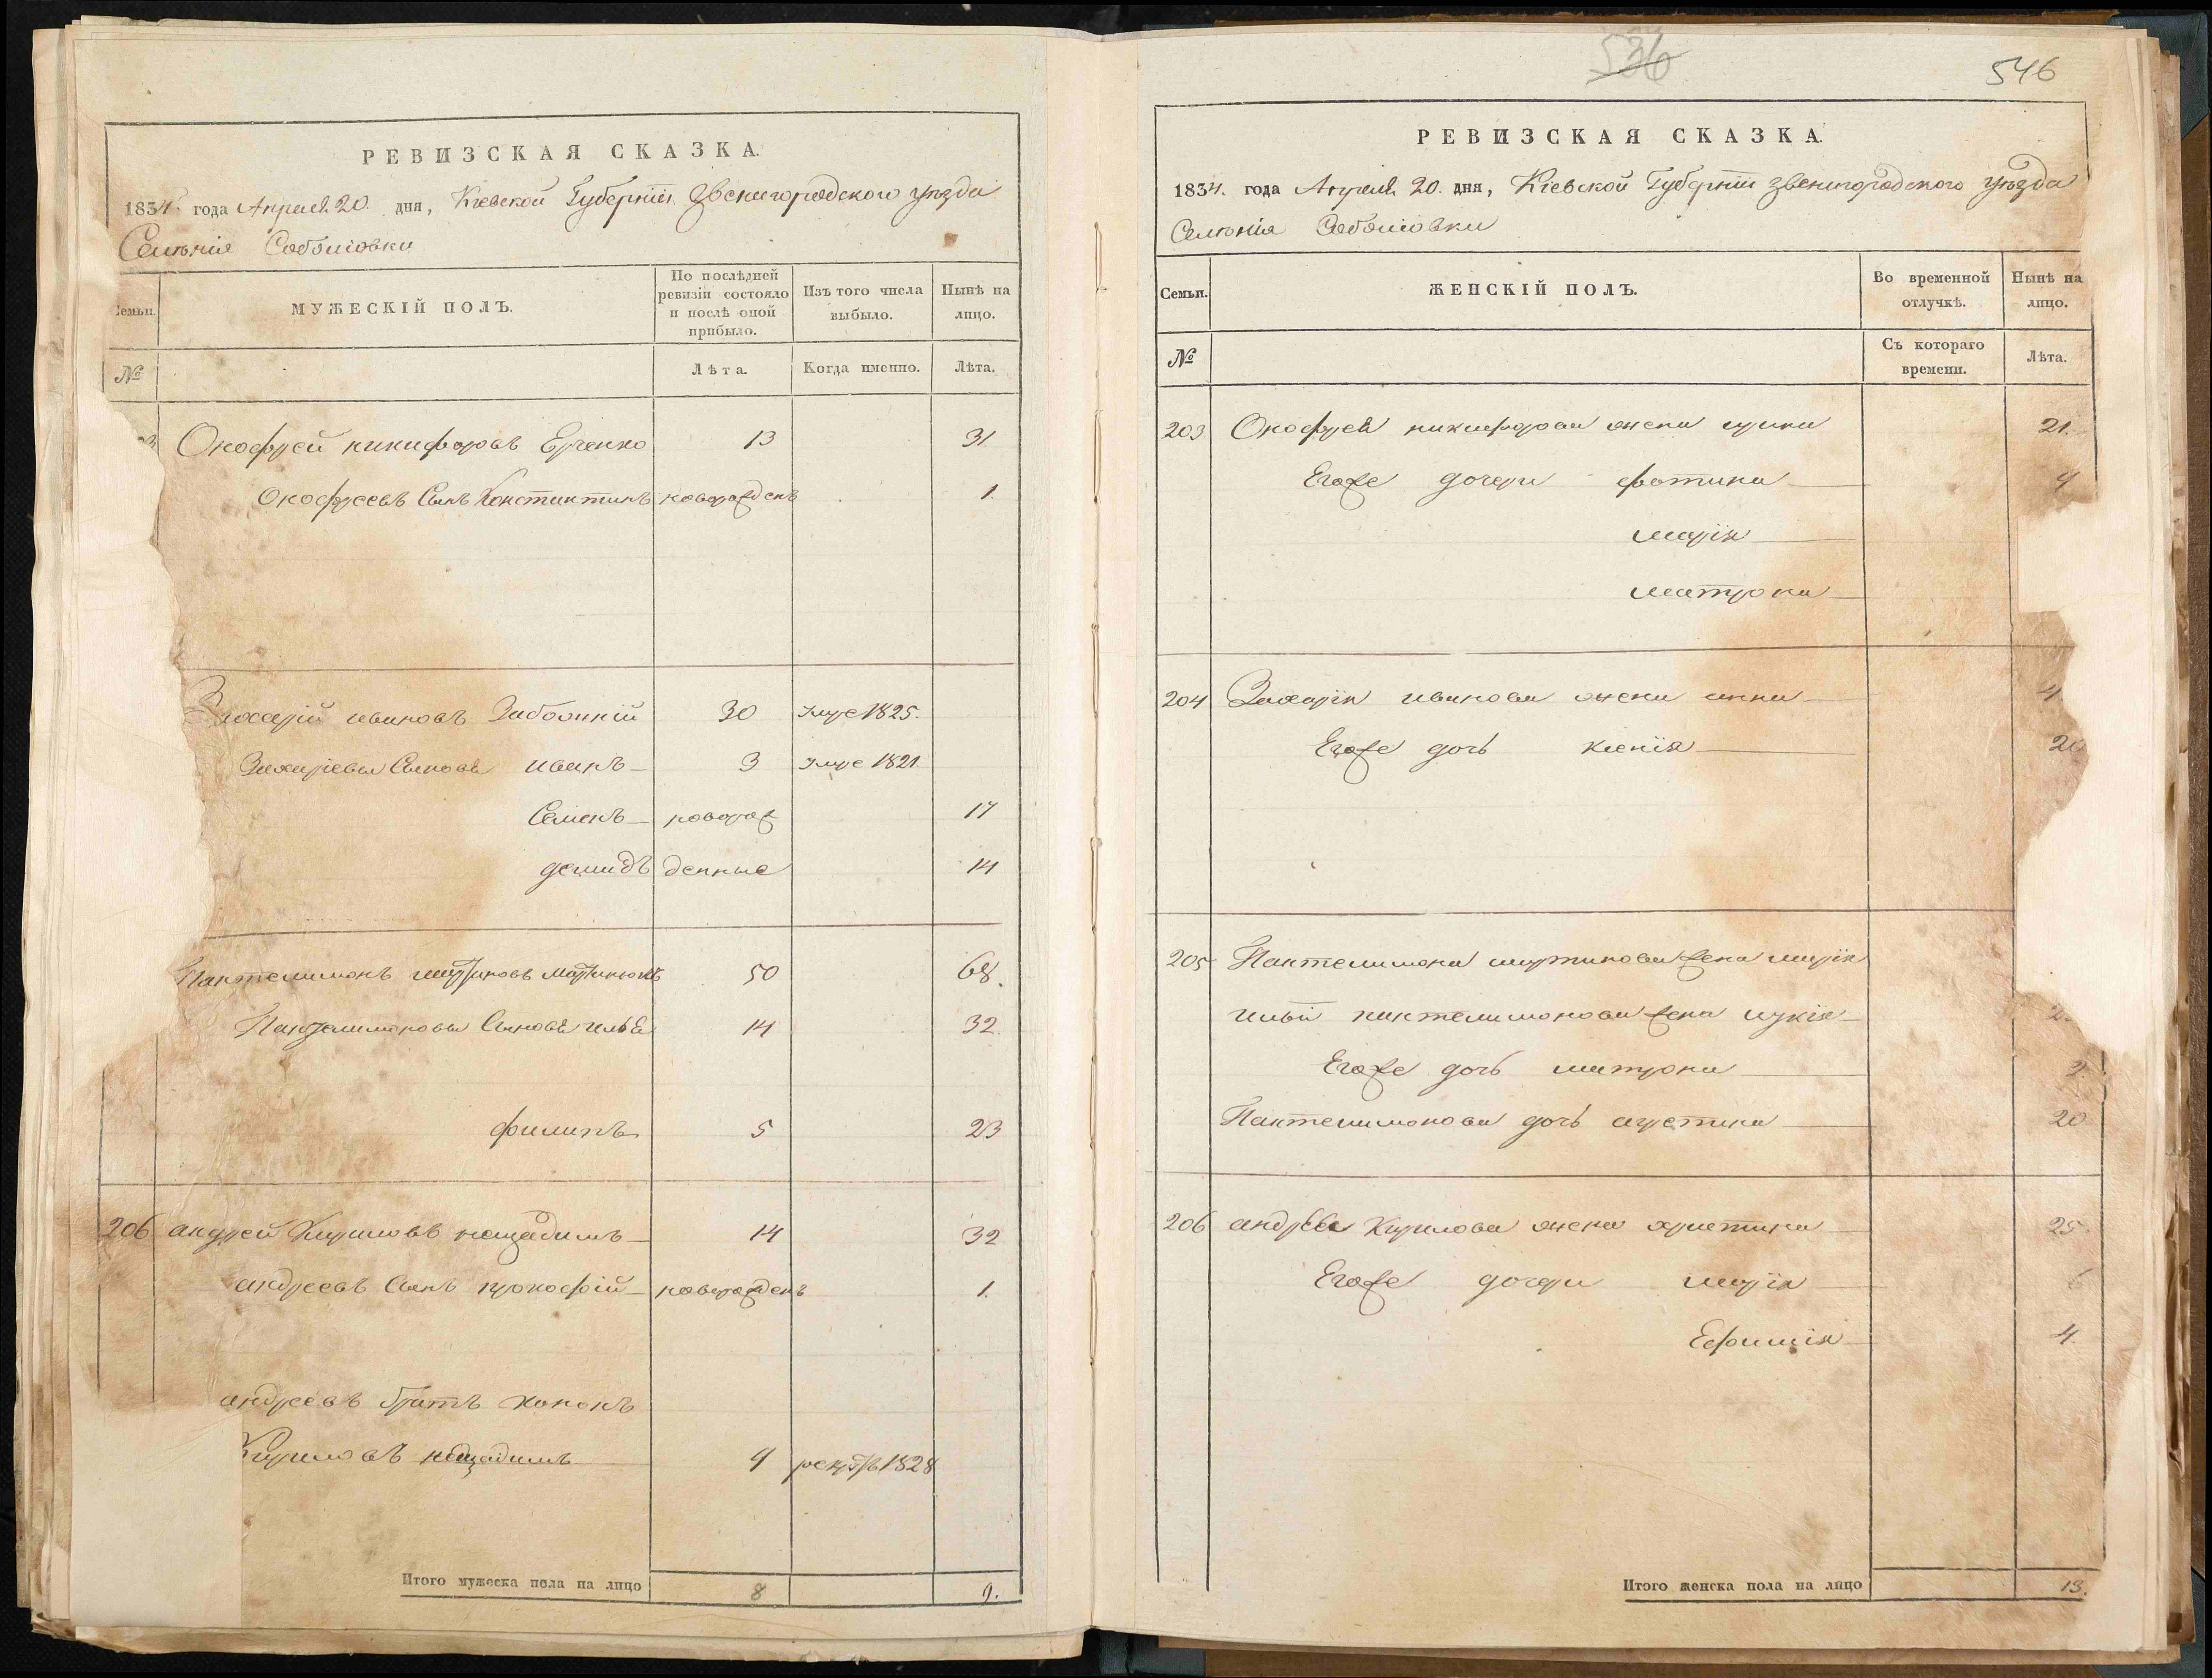 РЕВИЗСКАЯ СКАЗКА.
1834. года Апреля 20. дня, Кіевской Губерніи Звенигородского уѣзда
Селенія Соболіовки
Семьи.
МУЖЕСКІЙ ПОЛЪ.
По послѣдней ревизіи состояло и послѣ оной прибыло.
Изъ того числа выбыло.
Нынѣ на лицо.
№
Лѣта.
Когда именно.
Лѣта.
Онофрей никифоровъ 13 31
Онофреевъ Сынъ Константинъ новорожденъ 1.
Захарій ивановъ Заболнній 30 умре 1825.
Захаріевы Сыновя иванъ 3 умре 1821.
Семенъ новорож 17
демидъ денные 14
Пантелимонъ мартиновъ 50 68.
Пантелимоновы Сыновя илья 14 32.
филипъ 5 23
206 андрей Кириловъ нещадимъ 14 32
андреевъ Сынъ прокофій новорожденъ 1.
андреевъ братъ кононъ
Кириловъ нещадимъ 9 рекр 1828
Итого мужеска пола на лицо 8 9.
536
546
РЕВИЗСКАЯ СКАЗКА.
1834. года Апреля 20. дня, Кіевской Губерніи Звенигородского уѣзда
Селенія Соболіовки
Семьи.
ЖЕНСКІЙ ПОЛЪ.
Во временной отлучкѣ.
Нынѣ на лицо.
№
Съ котораго времени.
Лѣта.
203 Онофрея никифорова жена ирина 21.
Егоже дочери фотина 9
марія
матрона
204 Захарія иванова жена анна 4
Егоже дочь ксенія 20
205 Пантелимона мартинова жена марія
ильи пантелимонова жена 2
Егоже дочь матрона 2
Пантелимонова дочь 20
206 андрея Кирилова жена христина 25
Егоже дочери марія 6
Ефимія 4.
Итого женска пола на лицо 13.